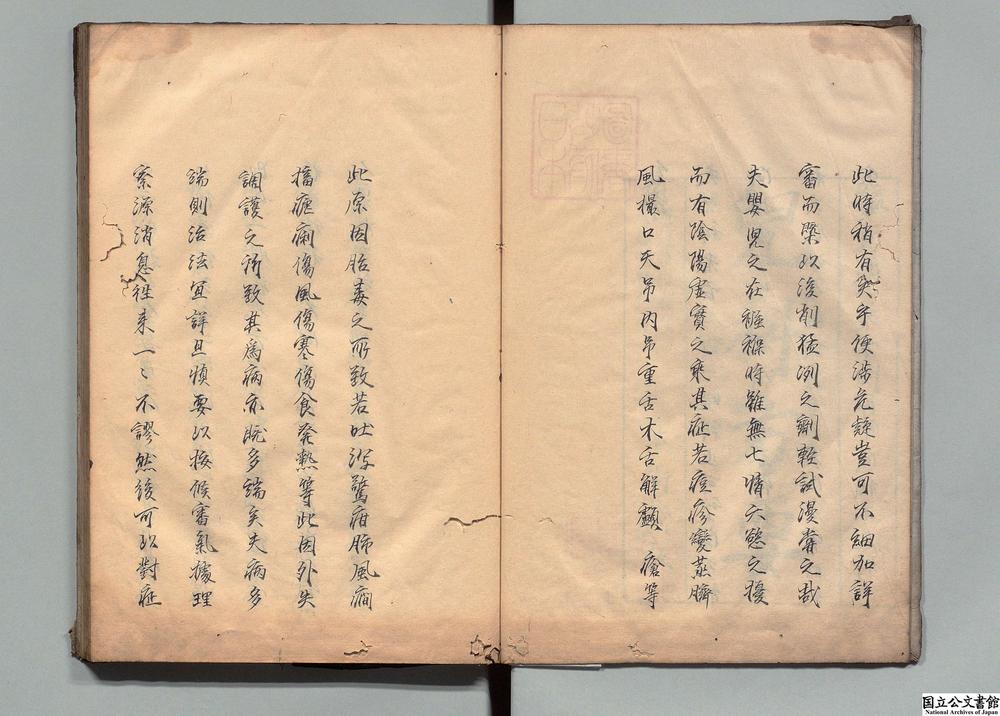 此時稍有失守便涉危疑豈可不細加詳
審而槩以浚削猛冽之劑輕試漫嘗之哉
夫嬰兒之在襁褓時雖無七情六慾之擾
而有陰陽虛實之乘其症若痘疹變蒸臍
風撮口天吊內吊重舌木舌解顱 瘡等
此原因胎毒之所致若吐瀉驚疳肺風癇
搐瘧痢傷風傷寒傷食発熱等此因外失
調護之所致其為病亦既多端矣夫病多
端則治法宜詳且慎要以按候審氣據理
察源消息徃来一〻不謬然後可以對症
国立公文書館
National Archives of Japan